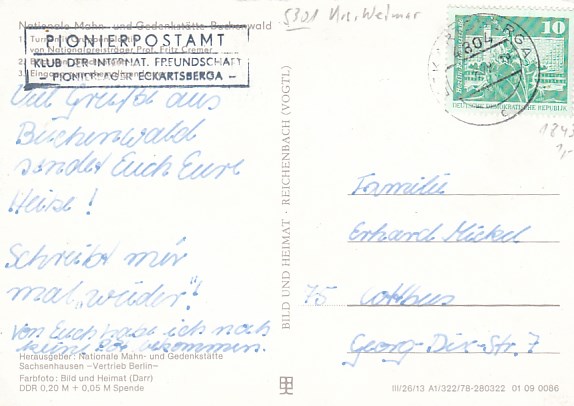 5301 Krs. Weimar
Nationale Mahn- und Gedenkstätte Buchenwald
PIONIERPOSTAMT
KLUB DER INTERNAT. FREUNDSCHAFT
ECKARTSBERGA
von Nationalpreisträger Prof. Fritz Cremer
Viel Grüße aus
Buchenwald
sendet Euch Eure
Heise!
Schreibt mir
mal „wieder"!
von Euch habe ich noch
keine bekommen.
Herausgeber: Nationale Mahn- und Gedenkstätte
Sachsenhausen –Vertrieb Berlin–
Farbfoto: Bild und Heimat (Darr)
DDR 0,20 M + 0,05 M Spende
BILD UND HEIMAT · REICHENBACH (VOGTL)
10
DEUTSCHE DEMOKRATISCHE REPUBLIK
4804
Familie
Erhard Mickel
75 Cottbus
Georg-Dix-Str. 7
III/26/13 A1/322/78-280322 01 09 0086